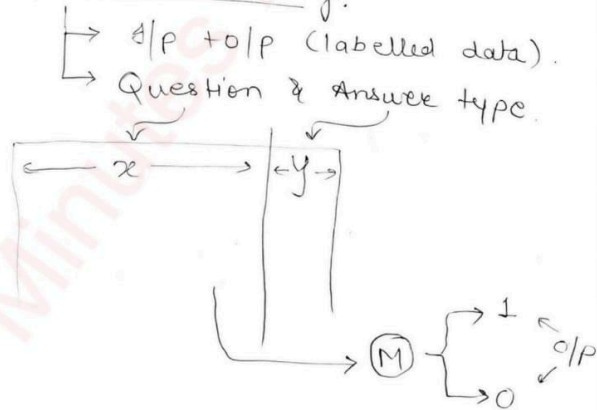 → I/p + o/p (labelled data).
→ Question & Answer type.
x y
1
M o/p
0
Minutes